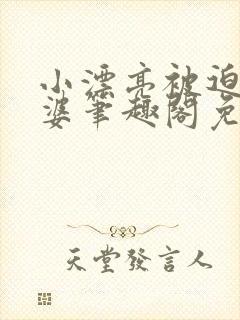 小漂亮被迫
婆笔趣阁免
天堂發言人